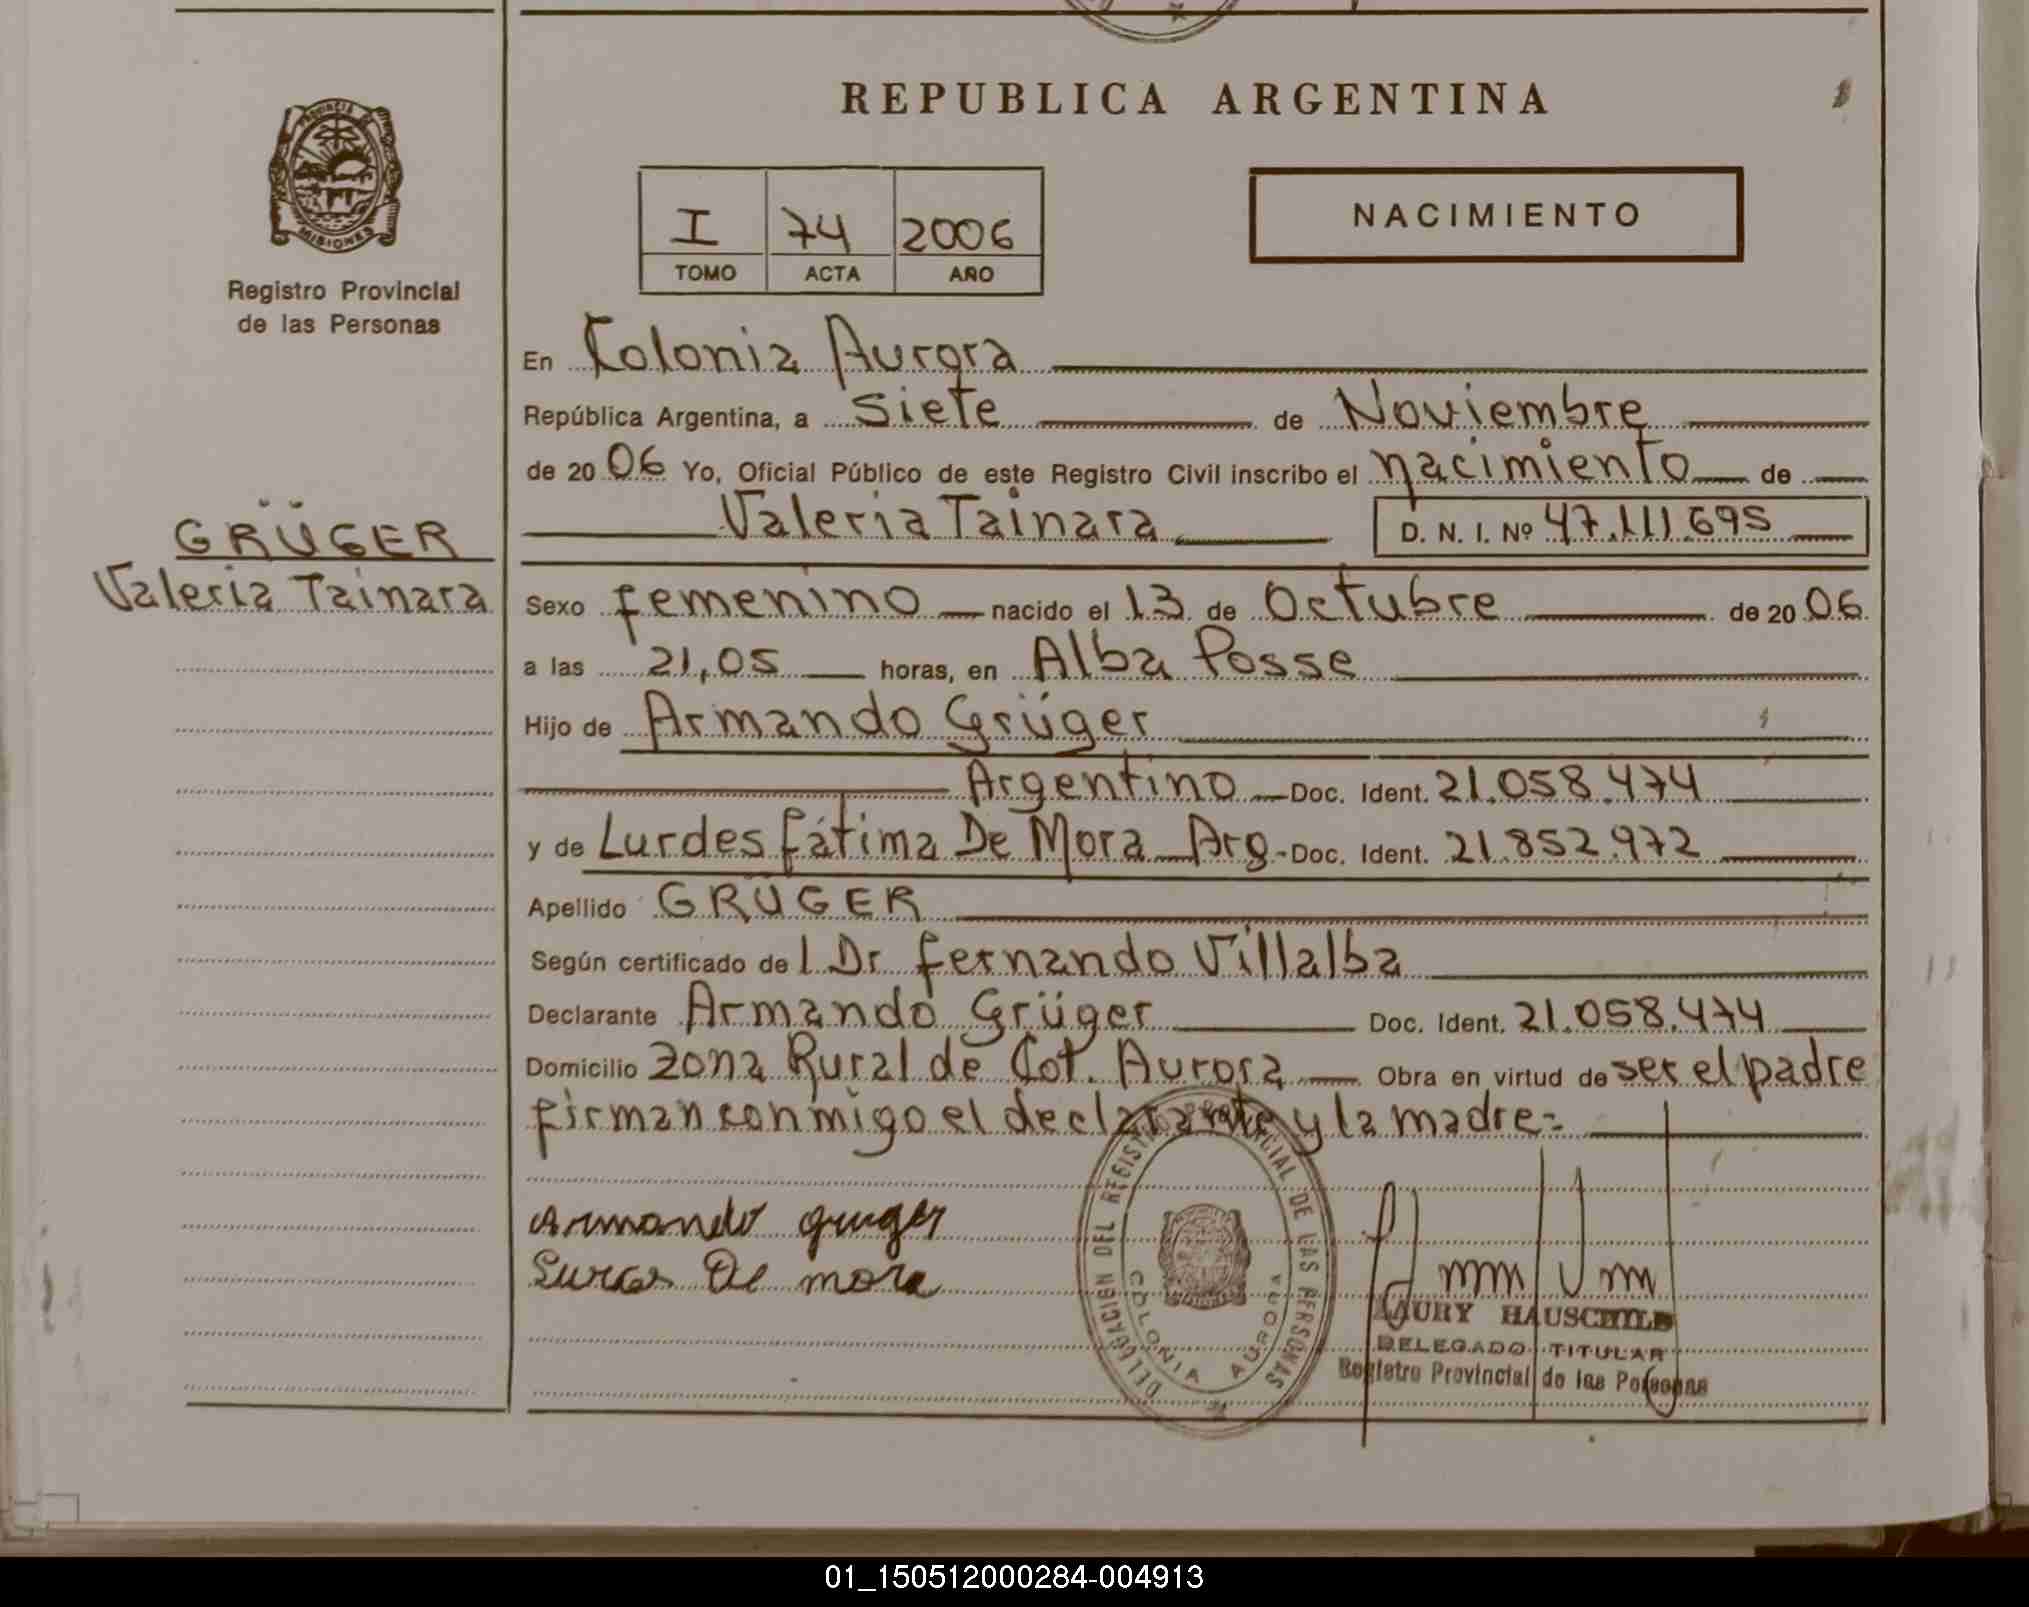 REPUBLICA ARGENTINA
PROVINCIA DE
MISIONES
Registro Provincial
de las Personas
I 74 2006
TOMO ACTA AÑO
NACIMIENTO
En Colonia Aurora
República Argentina, a siete de Noviembre
de 2006 Yo, Oficial Público de este Registro Civil inscribo el nacimiento de
Valeria Tainara D. N. I. Nº 47.111.695
GRÜGER
Valeria Tainara
Sexo femenino nacido el 13 de Octubre de 2006
a las 21,05 horas, en Alba Posse
Hijo de Armando Grüger
Argentino Doc. Ident. 21.058.474
y de Lurdes Fátima De Mora Arg- Doc. Ident. 21.852.972
Apellido GRÜGER
Según certificado de l Dr Fernando Villalba
Declarante Armando Grüger Doc. Ident. 21.058.474
Domicilio Zona Rural de Col. Aurora Obra en virtud de ser el padre
firman conmigo el declarante y la madre=
Armando gruger
De mora
DELEGACION DEL REGISTRO PROVINCIAL DE LAS PERSONAS
COLONIA AURORA
AURY HAUSCHILD
DELEGADO TITULAR
Registro Provincial de las Personas
01_150512000284-004913